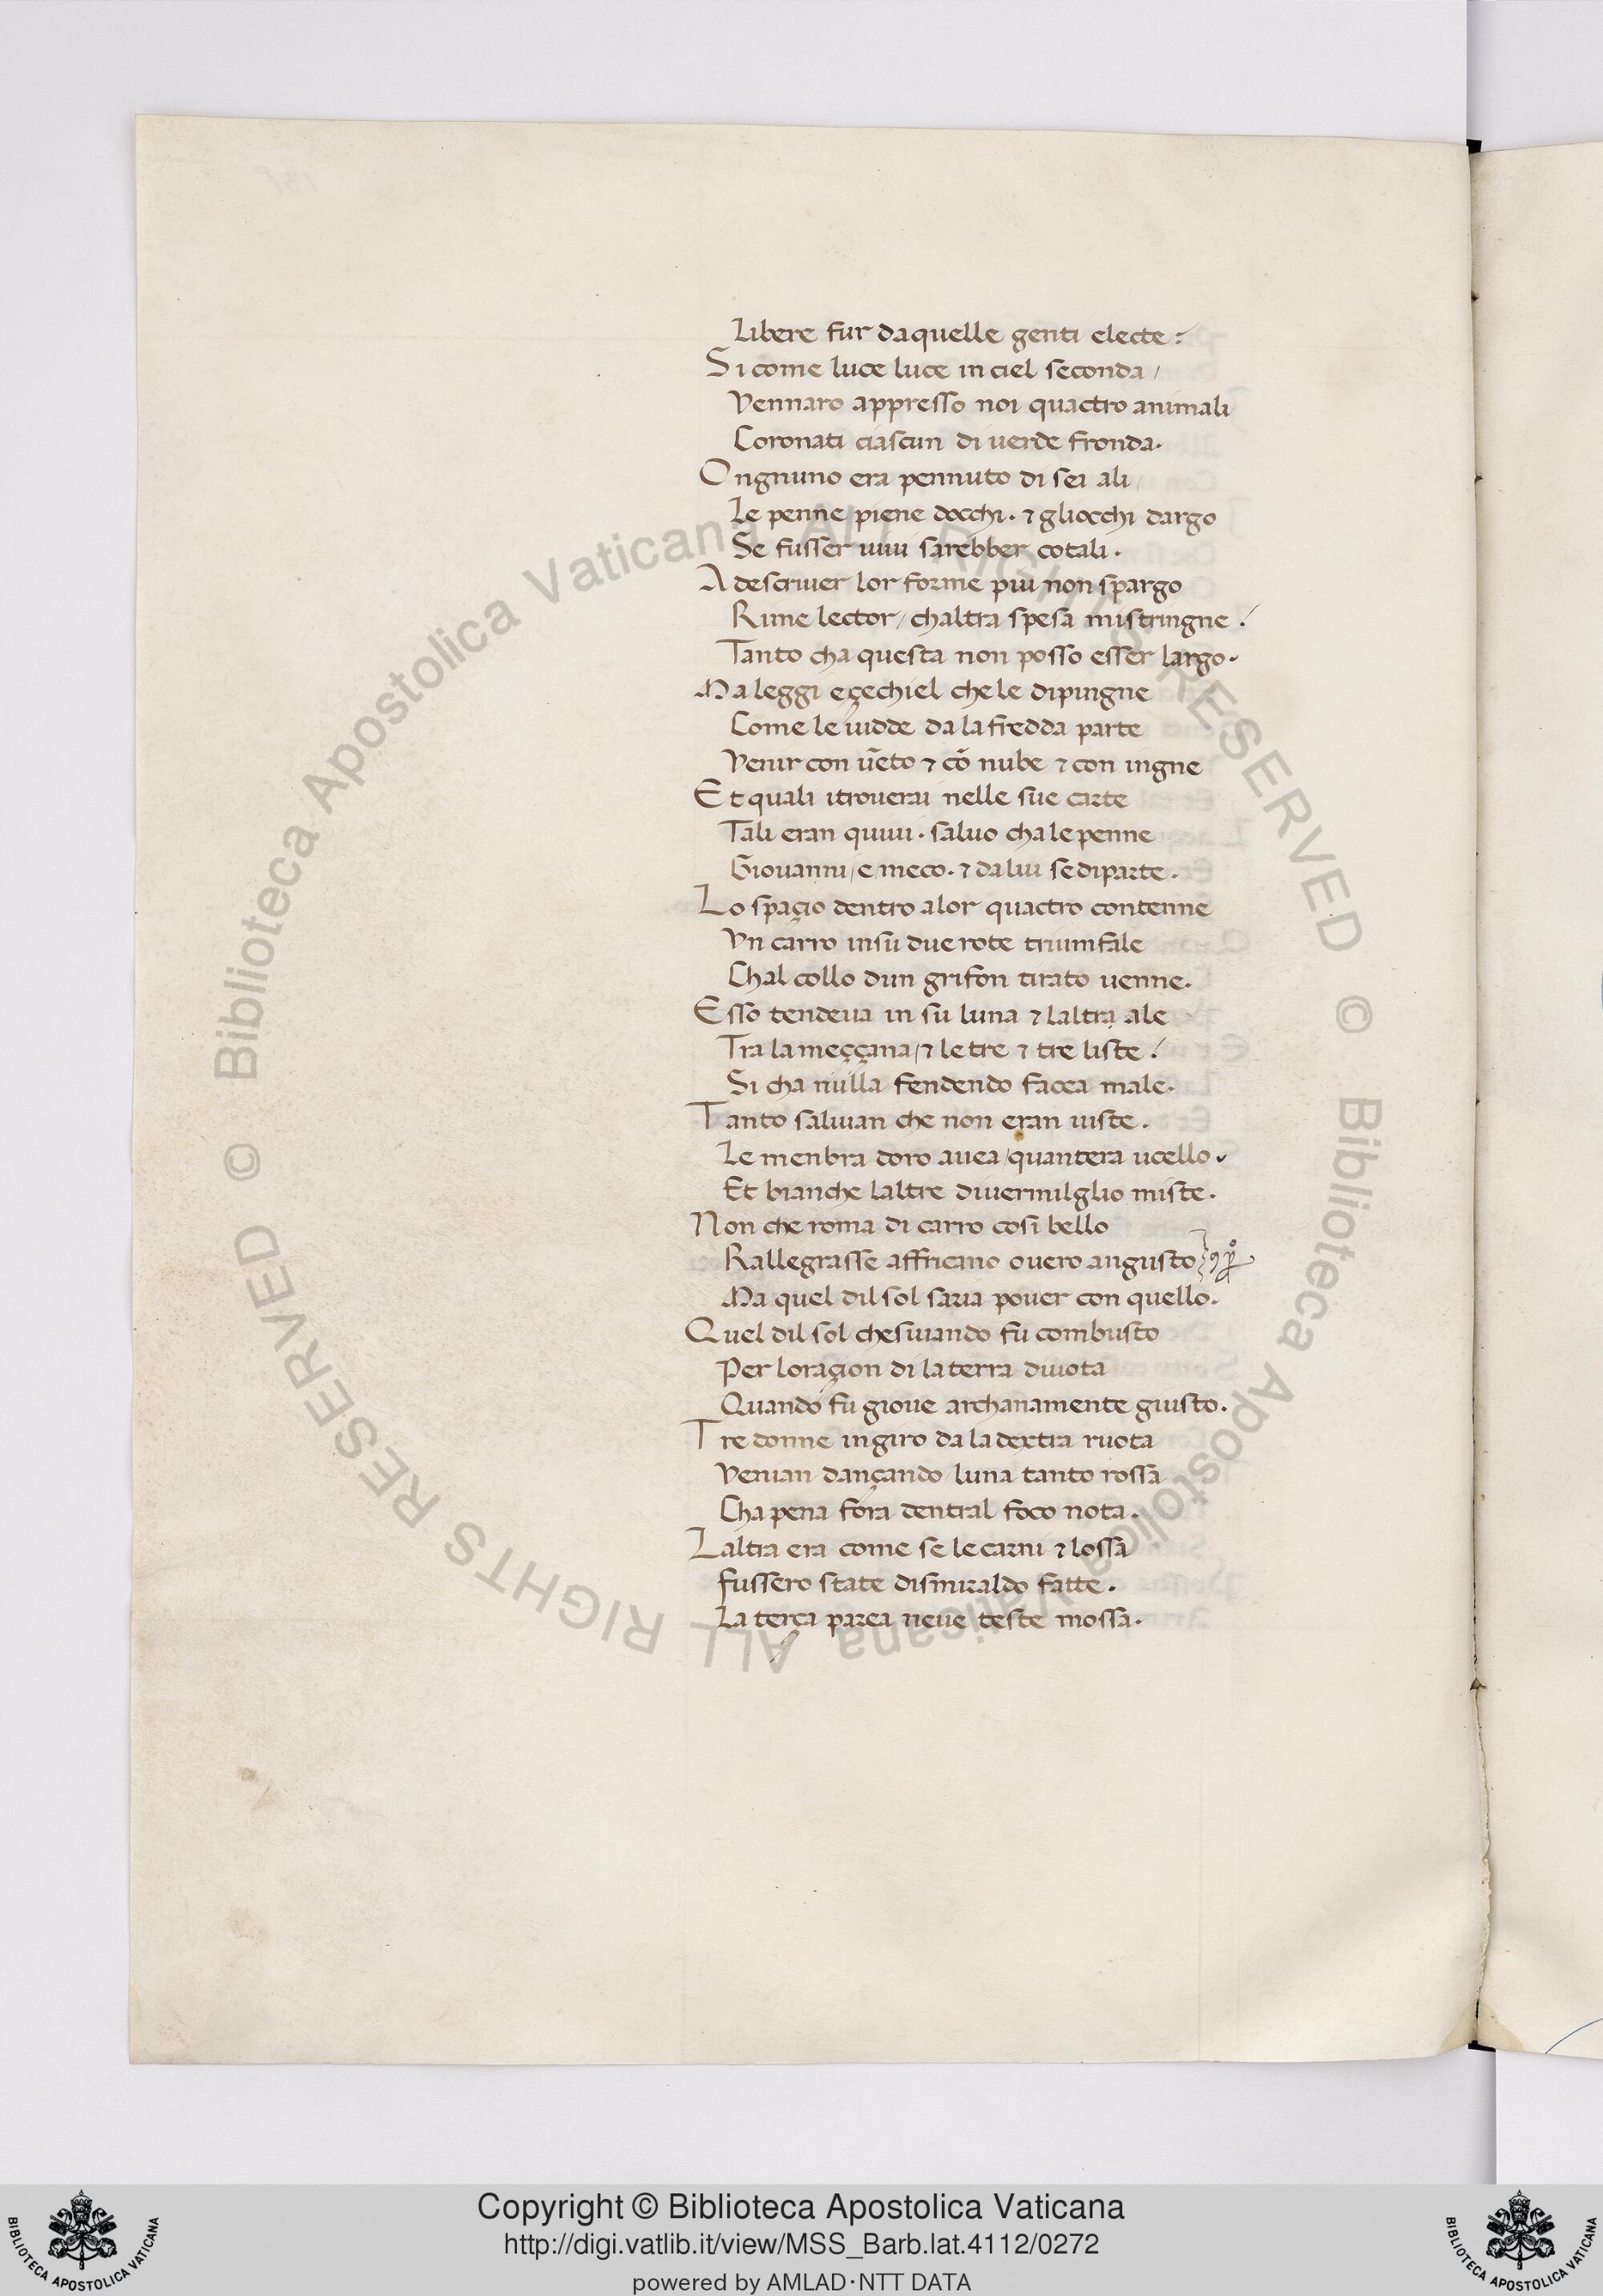 Libere fur daquelle genti electe:
Si come luce luce in ciel seconda /
Vennaro appresso noi quactro animali
Coronati ciascun di uerde fronda.
Ongnuno era pennuto di sei ali /
Le penne piene docchi. ⁊ gliocchi dargo
Se fusser uiui sarebber cotali.
A descriuer lor forme piu non spargo
Rime lector / chaltra spesa mistringne /
Tanto cha questa non posso esser largo.
Ma leggi eçechiel chele dipingne
Come le uidde da la fredda parte
Venir con uēto ⁊ cō nube ⁊ con ingne
Et quali itrouerai nelle sue carte
Tali eran quiui. saluo cha le penne
Giouanni / e meco. ⁊ da lui se diparte.
Lo spaçio dentro alor quactro contenne
Vn carro insu due rote triumfale
Chal collo dun grifon tirato uenne.
Esso tendeua in su luna ⁊ laltra ale
Tra la meççana / ⁊ le tre ⁊ tre liste /
Si cha nulla fendendo facea male.
Tanto saliuan che non eran uiste.
Le menbra doro auea / quantera ucello.
Et bianche laltre di uermilglio miste.
Non che roma di carro cosi bello
Rallegrasse affricano ouero augusto
Ma quel dil sol saria pouer con quello.
Quel dil sol chesuiando fu combusto
Per loraçion di la terra diuota
Quando fu gioue archanamente giusto.
Tre donne ingiro da la dextra ruota
Venian dançando / luna tanto rossa
Cha pena fora dentral foco nota.
Laltra era come se le carni ⁊ lossa
fussero state dismiraldo fatte.
La terça parea neue teste mossa.
© Biblioteca Apostolica Vaticana ALL RIGHTS RESERVED © Biblioteca Apostolica Vaticana ALL RIGHTS RESERVED
Copyright © Biblioteca Apostolica Vaticana
http://digi.vatlib.it/view/MSS_Barb.lat.4112/0272
powered by AMLAD·NTT DATA
BIBLIOTECA APOSTOLICA VATICANA
BIBLIOTECA APOSTOLICA VATICANA